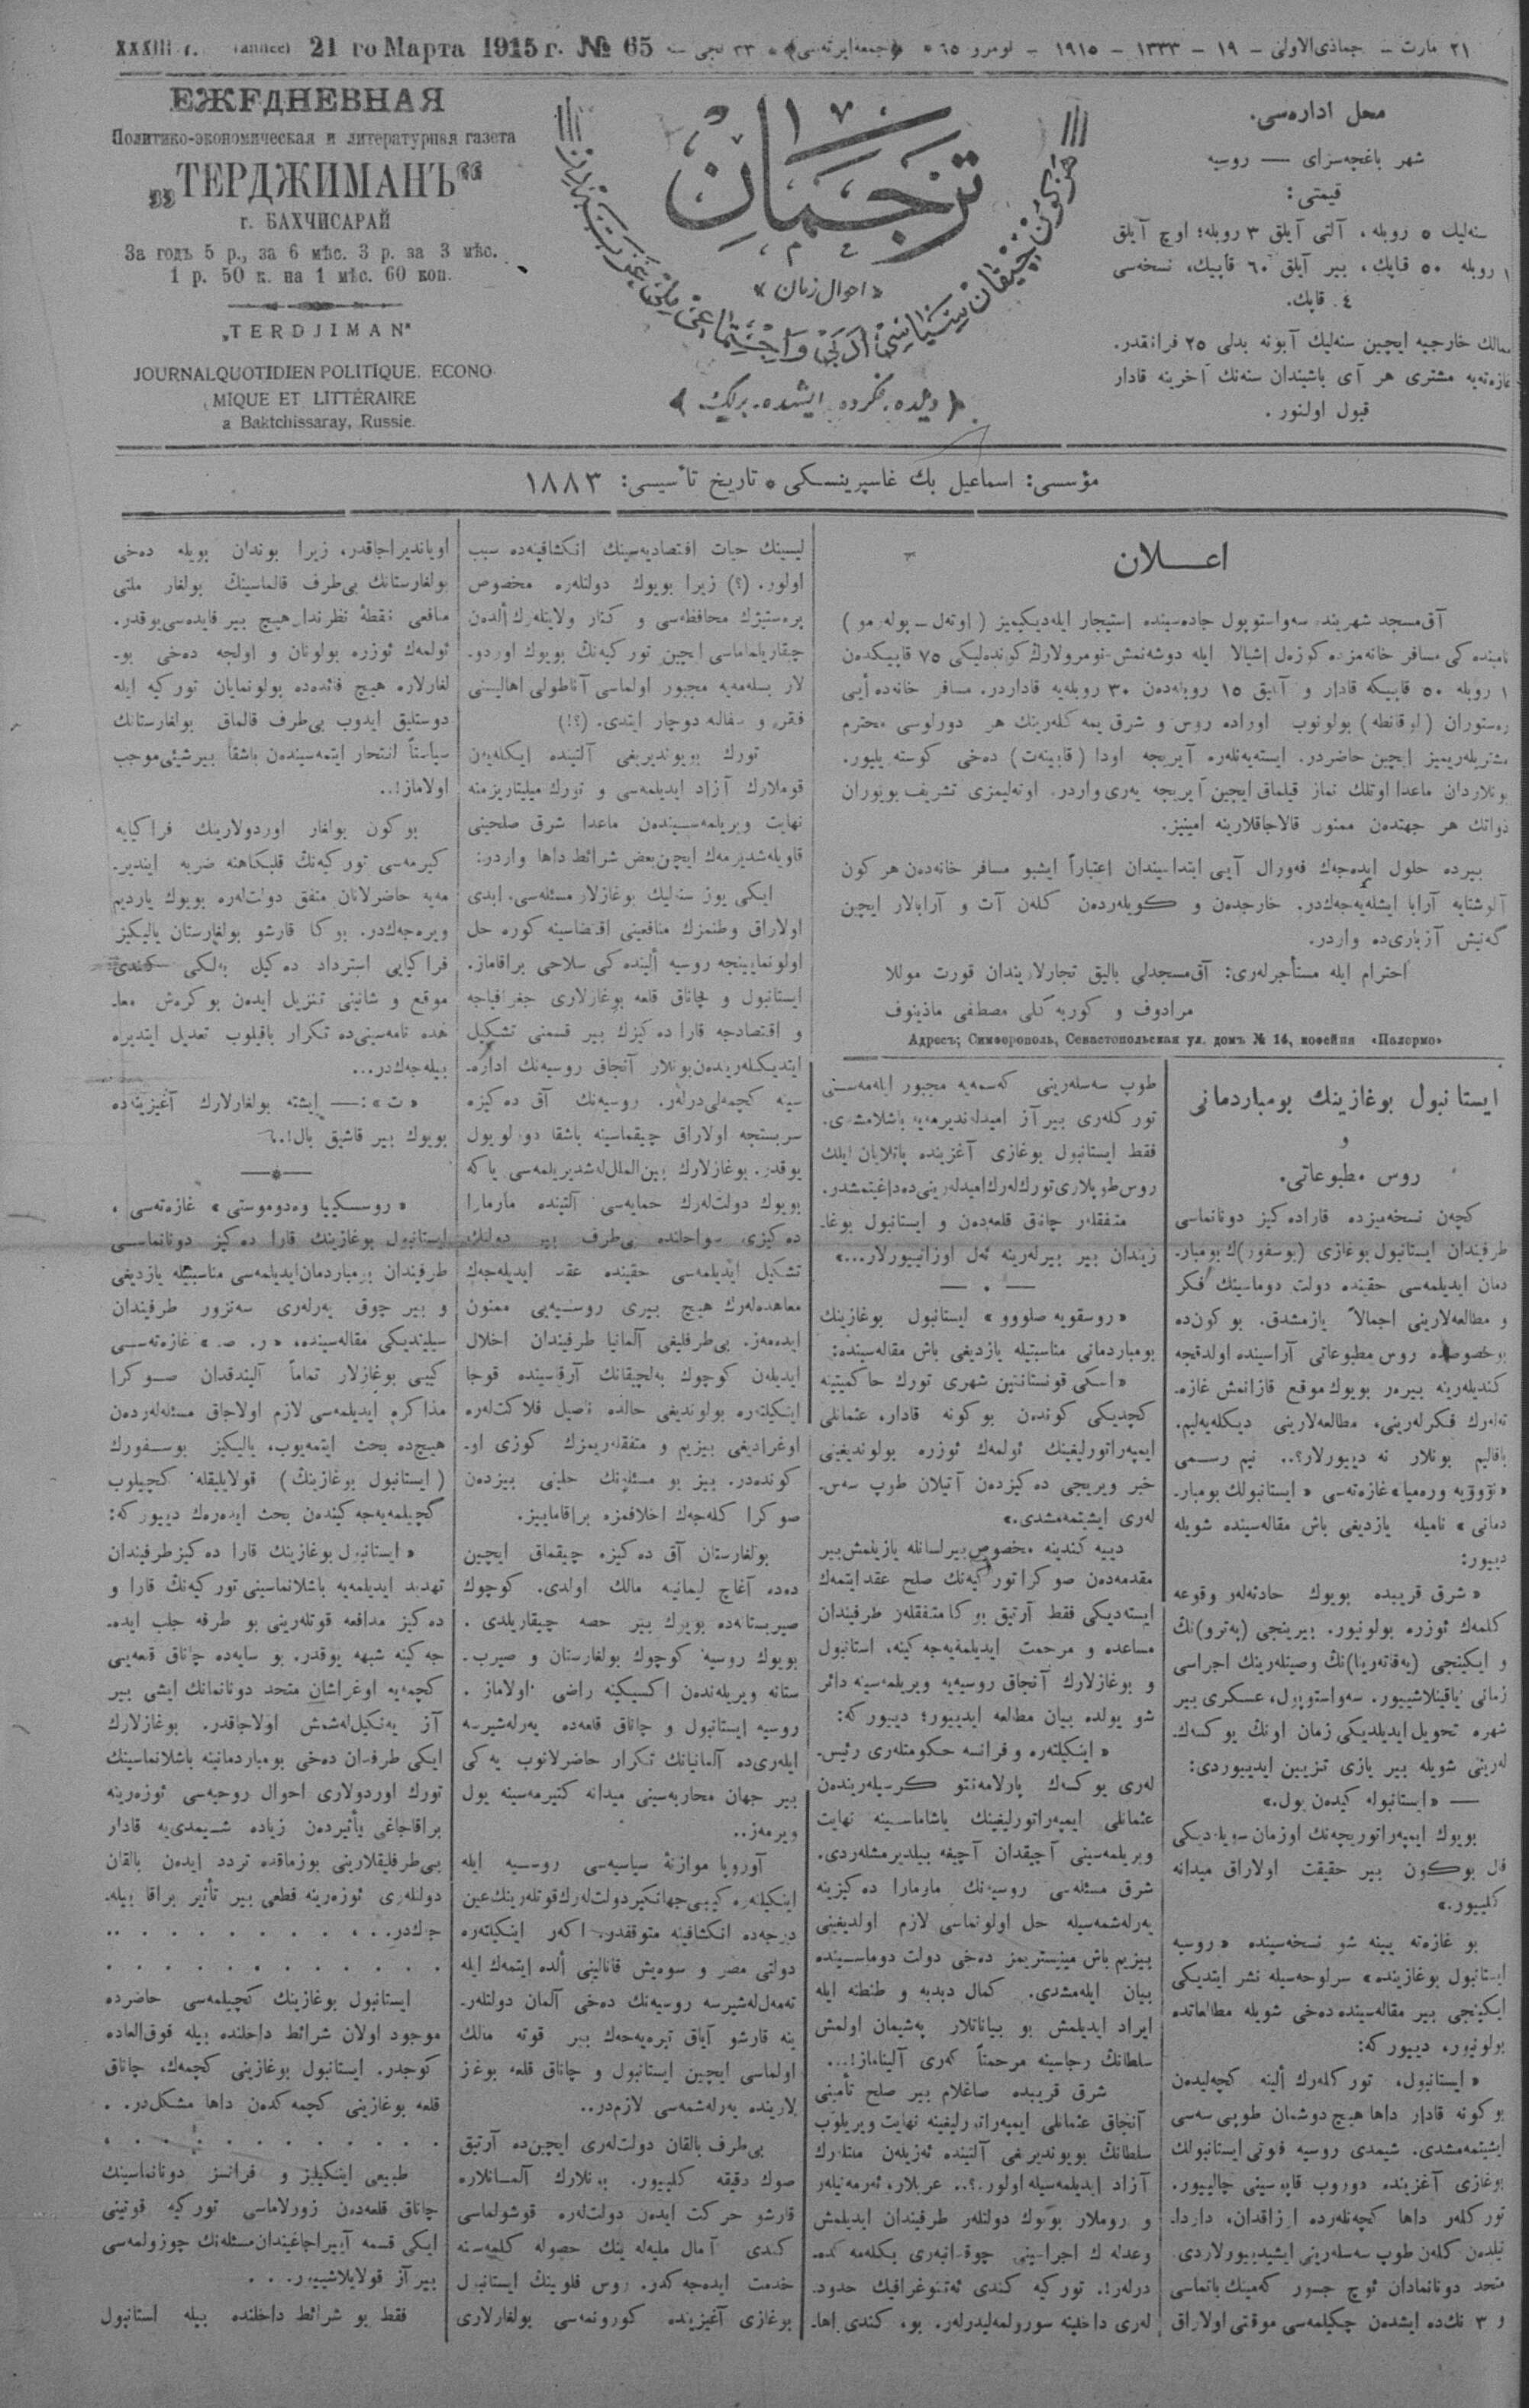 XXXIII г. (année) 21 го Марта 1915 г. № 65
٢١ مارت – جماذی‌الاولی – ١٩ – ١٣٣٣ – ١٩١٥ – نومرو ٦٥ * «جمعه‌ایرته‌سی» * ٣٣ نجی سنه
ЕЖЕДНЕВНАЯ
Политико-экономическая и литературная газета
„ТЕРДЖИМАНЪ“
г. БАХЧИСАРАЙ
За годъ 5 р., за 6 мѣс. 3 р. за 3 мѣс.
1 р. 50 к. на 1 мѣс. 60 коп.
„TERDJIMAN“
JOURNAL QUOTIDIEN POLITIQUE. ECONO-
MIQUE ET LITTÉRAIRE
a Baktchissaray, Russie.
ترجمان
«احوال زمان»
هر كون چیقان سیاسی، ادبی و اجتماعی ملی غزته‌در
«دیلده، فكرده، ایشده، برلك»
محل اداره‌سی.
شهر باغچه‌سرای — روسیه
قیمتی:
سنه‌لیك ٥ روبله، آلتی آیلق ٣ روبله؛ اوچ آیلق
١ روبله ٥٠ قاپیك، بیر آیلق ٦٠ قاپیك، نسخه‌سی
٤ قاپك.
ممالك خارجیه ایچین سنه‌لیك آبونه بدلی ٢٥ فرانقدر.
غازه‌ته‌یه مشتری هر آی باشیندان سنه‌نك آخرینه قادار
قبول اولنور.
مؤسسی: اسماعیل بك غاسپرینسكی * تاریخ تأسیسی: ١٨٨٣
اعلان
آق‌مسجد شهرینده سه‌واستوپول جاده‌سینده إستیجار ایله‌دیكیمیز (اوته‌ل – پوله‌رمو)
نامنده كی مسافر خانه‌مزده كوزه‌ل إشیالا ایله دوشه‌نمش نومرولارك كونده‌لیكی ٧٥ قاپیكدن
١ روبله ٥٠ قاپیكه قادار و آیلق ١٥ روبله‌دن ٣٠ روبله‌یه قاداردر. مسافر خانه‌ده أیی
ره‌ستوران (لوقانطه) بولونوب اوراده روس و شرق یمه كله‌رینك هر دورلوسی محترم
مشتریله‌ریمیز ایچین حاضردر. ایسته‌یه‌نله‌ره آیریجه اودا (قابینه‌ت) ده‌خی كوسته‌یلیور.
بونلاردان ماعدا اوتلك نماز قیلماق ایچین آیریجه یه‌ری واردر. اوته‌لیمزی تشریف بویوران
ذواتك هر جهتدن ممنون قالاجاقلارینه امینیز.
بیرده حلول ایده‌جه‌ك فه‌ورال آیی ابتداسیندان اعتباراً ایشبو مسافر خانه‌دن هر كون
آلوشتایه آرابا ایشله‌یه‌جه‌كدر. خارجدن و كویله‌ردن كله‌ن آت و آرابالار ایچین
گه‌نیش آزباری‌ده واردر.
احترام ایله مستأجرله‌ری: آق‌مسجدلی بالیق تجارلاریندان قورت موللا
مرادوف و كوربه كلی مصطفی ماذینوف
Адресъ; Симферополь, Севастопольская ул. домъ № 14, кофейня «Палермо»
ایستانبول بوغازینك بومباردمانی
و
روس مطبوعاتی.
كچه‌ن نسخه‌میزده قارا‌ده كیز دونانماسی
طرفندان ایستانبول بوغازی (بوسفور)ك بومبار-
دمان ایدیلمه‌سی حقینده دولت دوماسینك فكر
و مطالعه‌لارینی اجمالاً یازمشدق. بو كون‌ده
بوخصوصده روس مطبوعاتی آراسینده اولدقجه
كندیله‌رینه بیره‌ر بویوك موقع قازانمش غازه-
ته‌له‌رك فكرله‌رینی، مطالعه‌لارینی دیكله‌یه‌لیم.
باقالیم بونلار نه دییورلار؟.. نیم رسمی
«نوویه وره‌میا» غازه‌ته‌سی «ایستانبولك بومبار-
دمانی» نامیله یازدیغی باش مقاله‌سینده شویله
دییور:
«شرق قریبده بویوك حادثه‌له‌ر وقوعه
كلمه‌ك ئوزره بولونیور. بیرینجی (په‌ترو)نك
و ایكینجی (یه‌قاته‌رینا)نك وصیتله‌رینك اجراسی
زمانی یاقینلاشییور. سه‌واستوپول، عسكری بیر
شهره تحویل ایدیلدیكی زمان اونك یوكسه‌ك-
له‌رینی شویله بیر یازی تزیین ایدییوردی:
— «ایستانبوله كیدن یول.»
بویوك ایمپه‌راتوریچه‌نك اوزمان سویله‌دیكی
قال بوكون بیر حقیقت اولاراق میدانه
كلییور.»
بو غازه‌ته یینه شو نسخه‌سینده «روسیه
ایستانبول بوغازینده» سرلوحه‌سیله نشر ایتدیكی
ایكینجی بیر مقاله‌سینده ده‌خی شویله مطالعاتده
بولونیور، دییور كه:
«ایستانبول، توركله‌رك ألینه كچه‌لیدن
بو كونه قادار داها هیچ دوشمان طوپی سه‌سی
ایشیتمه‌مشدی. شیمدی روسیه فلوتی ایستانبولك
بوغازی آغزینده دوروب قاپوسینی چالییور.
توركله‌ر داها كچه‌نله‌رده اوزاقدان، داردا-
نیلدن كله‌ن طوپ سه‌سله‌رینی ایشیدییورلاردی.
متحد دونانمادان ئوچ جسور كه‌مینك باتماسی
و ٣ نك‌ده ایشدن چكیلمه‌سی موقتی اولاراق
طوپ سه‌سله‌رینی كه‌سمه‌یه مجبور ایله‌مه‌سی
توركله‌ری بیر آز امیدله‌ندیرمه‌یه باشلامشدی.
فقط ایستانبول بوغازی آغزینده پاتلایان ایلك
روس طوپلاری تورك‌له‌رك امیدله‌رینی‌ده داغیتمشدر.
متفقله‌ر چاناق قلعه‌دن و ایستانبول بوغا-
زیندان بیر بیرله‌رینه ئه‌ل اوزاتییورلار...»
«روسقویه صلووو» ایستانبول بوغازینك
بومباردمانی مناسبتیله یازدیغی باش مقاله‌سینده:
«اسكی قونستانتین شهری تورك حاكمیتینه
كچدیكی كوندن بو كونه قادار، عثمانلی
ایمپه‌راتورلیغینك ئولمه‌ك ئوزره بولوندیغینی
خبر ویریجی ده‌كیزدن آتیلان طوپ سه‌س-
له‌ری ایشیتمه‌مشدی.»
دییه كندینه مخصوص بیر لسانله یازیلمش بیر
مقدمه‌دن صوكرا توركیه‌نك صلح عقد ایتمه‌ك
ایسته‌دیكی فقط آرتیق بوكا متفقله‌ر طرفیندان
مساعده و مرحمت ایدیلمه‌یه‌جه كینه، استانبول
و بوغازلارك آنجاق روسیه‌یه ویریلمه‌سینه دائر
شو یولده بیان مطالعه ایدییور؛ دییور كه:
«اینكیلته‌ره و فرانسه حكومتله‌ری رئیس-
له‌ری یوكسه‌ك پارلامه‌نتو كرسیله‌ریندن
عثمانلی ایمپه‌راتورلیغینك یاشاماسینه نهایت
ویریلمه‌سینی آچیقدان آچیغه بیلدیرمشله‌ردی.
شرق مسئله‌سی روسیه‌نك مارمارا ده‌كیزینه
یه‌رله‌شمه‌سیله حل اولونماسی لازم اولدیغینی
بیزیم باش مینیستریمز ده‌خی دولت دوماسینده
بیان ایله‌مشدی. كمال دبدبه و طنطنه ایله
ایراد ایدیلمش بو بیاناتلار پشیمان اولمش
سلطانك رجاسینه مرحمتاً كه‌ری آلیناماز!...
شرق قریبده صاغلام بیر صلح تأمینی
آنجاق عثمانلی ایمپه‌راتورلیغینه نهایت ویریلوب
سلطانك بویوندیریغی آلتینده ئه‌زیله‌ن ملتله‌رك
آزاد ایدیلمه‌سیله اولور.؟.. عربلار، ئه‌رمه‌نیله‌ر
و روملار بویوك دولتله‌ر طرفیندان ایدیلمش
وعدله‌ك اجراسینی چوقدانبه‌ری بكله‌مه كده-
درله‌ر!. توركیه كندی ئه‌تنوغرافیك حدود-
له‌ری داخلینه سورولمه‌لیدرله‌ر. بو، كندی اها-
لیسینك حیات اقتصادیه‌سینك انكشافینه‌ده سبب
اولور. (؟) زیرا بویوك دولتله‌ره مخصوص
پره‌ستیژك محافظه‌سی و كنار ولایتله‌رك ألدن
چیقاریلماماسی ایچین توركیه‌نك بویوك اوردو-
لار بسله‌مه‌یه مجبور اولماسی آناطولی اهالیسنی
فقر و سفاله دوچار ایتدی. (!؟)
تورك بویوندیریغی آلتینده ایكله‌ین
قوملارك آزاد ایدیلمه‌سی و تورك میلیتاریزمنه
نهایت ویریلمه‌سیندن ماعدا شرق صلحینی
قاویله‌شدیرمه‌ك ایچن بعض شرائط داها واردر:
ایكی یوز سنه‌لیك بوغازلار مسئله‌سی، ابدی
اولاراق وطنمزك منافعینی اقتضاسینه كوره حل
اولونماینجه روسیه ألینده كی سلاحی براقاماز.
ایستانبول و چاناق قلعه بوغازلاری جغرافیاجه
و اقتصادجه قارا ده‌كیزك بیر قسمنی تشكیل
ایتدیكله‌ریندن بونلار آنجاق روسیه‌نك اداره-
سینه كچمه‌لی‌درله‌ر. روسیه‌نك آق ده‌كیزه
سربستجه اولاراق چیقماسینه باشقا دورلو یول
یوقدر. بوغازلارك بین‌الملل‌له‌شدیریلمه‌سی یا كه
بویوك دولت‌له‌رك حمایه‌سی آلتینده مارمارا
ده‌كیزی سواحلنده بی‌طرف بیر دولتك
تشكیل ایدیلمه‌سی حقینده عقد ایدیله‌جه‌ك
معاهده‌له‌رك هیچ بیری روسیه‌یی ممنون
ایده‌مه‌ز. بی‌طرفلیغی آلمانیا طرفیندان اخلال
ایدیله‌ن كوچوك به‌لجیقانك آرقاسینده قوجا
اینكیلته‌ره بولوندیغی حالده ناصیل فلاكت‌له‌ره
اوغرادیغی بیزیم و متفقله‌ریمزك كوزی او-
كونده‌در. بیز بو مسئله‌نك حلینی بیزدن
صوكرا كله‌جه‌ك اخلافمزه براقامایز.
بولغارستان آق ده‌كیزه چیقماق ایچین
ده‌ده آغاچ لیمانینه مالك اولدی. كوچوك
صیربستانه‌ده بویوك بیر حصه چیقاریلدی.
بویوك روسیه كوچوك بولغارستان و صیرب-
ستانه ویریله‌ندن اكسیكینه راضی اولاماز.
روسیه ایستانبول و چاناق قلعه‌ده یه‌رله‌شیرسه
ایله‌ری‌ده آلمانیانك تكرار حاضرلانوب یه‌كی
بیر جهان محاربه‌سینی میدانه كتیرمه‌سینه یول
ویرمه‌ز..
آوروپا موازنهٔ سیاسیه‌سی روسیه ایله
اینكیلته‌ره كیبی جهانكیر دولت‌له‌رك قوتله‌رینك عین
درجه‌ده انكشافینه متوقفدر. اكه‌ر اینكیلته‌ره
دولتی مصر و سوه‌یش قانالینی ألده ایتمه‌ك ایله
ته‌مه‌ل‌له‌شیرسه روسیه‌نك ده‌خی آلمان دولتله‌ر-
ینه قارشو آیاق تیره‌یه‌جه‌ك بیر قوته مالك
اولماسی ایچین ایستانبول و چاناق قلعه بوغاز
لارینده یه‌رله‌شمه‌سی لازم‌در..
بی‌طرف بالقان دولت‌له‌ری ایچین‌ده آرتیق
صوك دقیقه كلییور. بونلارك آلمانلاره
قارشو حركت ایدن دولت‌له‌ره قوشولماسی
كندی آمال ملیه‌له‌رینك حصوله كلمه‌سنه
خدمت ایده‌جه كدر. روس فلوتینك ایستانبول
بوغازی آغیزینده كورونمه‌سی بولغارلاری
اویاندیراجاقدر، زیرا بوندان بویله ده‌خی
بولغارستانك بی‌طرف قالماسینك بولغار ملتی
منافعی نقطهٔ نظرندان هیچ بیر فایده‌سی یوقدر.
ئولمه‌ك ئوزره بولونان و اولجه ده‌خی بو-
لغارلاره هیچ فائده‌ده بولونمایان توركیه ایله
دوستلیق ایدوب بی‌طرف قالماق بولغارستانك
سیاستاً انتحار ایتمه‌سیندن باشقا بیر شیئی موجب
اولاماز!..
بو كون بولغار اوردولارینك فراكیایه
كیرمه‌سی توركیه‌نك قلبكاهنه ضربه ایندیر-
مه‌یه حاضرلانان متفق دولت‌له‌ره بویوك یاردیم
ویره‌جه‌كدر. بوكا قارشو بولغارستان یالیكیز
فراكیایی استرداد ده‌كیل به‌لكی كندی
موقع و شانینی تنزیل ایدن بوكره‌ش معا-
هده نامه‌سینی‌ده تكرار باقیلوب تعدیل ایتدیره
بیله‌جه‌كدر...
«ت»: — إیشته بولغارلارك آغیزینه‌ده
بویوك بیر قاشیق بال!..
«روسسكییا وه‌دوموستی» غازه‌ته‌سی،
ایستانبول بوغازینك قارا ده‌كیز دونانماسی
طرفیندان بومباردمان ایدیلمه‌سی مناسبتیله یازدیغی
و بیر چوق یه‌رله‌ری سه‌نزور طرفیندان
سیلیندیكی مقاله‌سینده، «ر. ص.» غازه‌ته‌سی
كیبی بوغازلار تماماً آلیندقدان صوكرا
مذاكره ایدیلمه‌سی لازم اولاجاق مسئله‌له‌ردن
هیچ‌ده بحث ایتمه‌یوب، یالیكیز بوسفورك
(ایستانبول بوغازینك) قولایلیقله كچیلوب
گچیلمه‌یه‌جه كیندن بحث ایده‌ره‌ك دییور كه:
«ایستانبول بوغازینك قارا ده‌كیز طرفیندان
تهدید ایدیلمه‌یه باشلانماسینی توركیه‌نك قارا و
ده‌كیز مدافعه قوتله‌رینی بو طرفه جلب ایده-
جه‌كینه شبهه یوقدر. بو سایه‌ده چاناق قلعه‌یی
كچمه‌یه اوغراشان متحد دونانمانك ایشی بیر
آز یه‌نكیل‌له‌شمش اولاجاقدر. بوغازلارك
ایكی طرفدان ده‌خی بومباردمانینه باشلانماسینك
تورك اوردولاری احوال روحیه‌سی ئوزه‌رینه
براقاجاغی تأثیردن زیاده شیمدی‌یه قادار
بی‌طرفلیقلارینی بوزماقده تردد ایدن بالقان
دولتله‌ری ئوزه‌رینه قطعی بیر تأثیر براقا بیله-
جه‌كدر. . . . . . . . . . . .
. . . . . . . . . . . . . .
ایستانبول بوغازینك كچیلمه‌سی حاضرده
موجود اولان شرائط داخلنده بیله فوق‌العاده
كوجدر. ایستانبول بوغازینی كچمه‌ك، چاناق
قلعه بوغازینی كچمه كدن داها مشكل‌در. .
. . . . . . . . . . . . . .
طبیعی اینكیلیز و فرانسز دونانماسینك
چاناق قلعه‌دن زورلاماسی توركیه قوتینی
ایكی قسمه آییراجاغیندان مسئله‌نك چوزولمه‌سی
بیر آز قولایلاشییور. . .
فقط بو شرائط داخلنده بیله استانبول